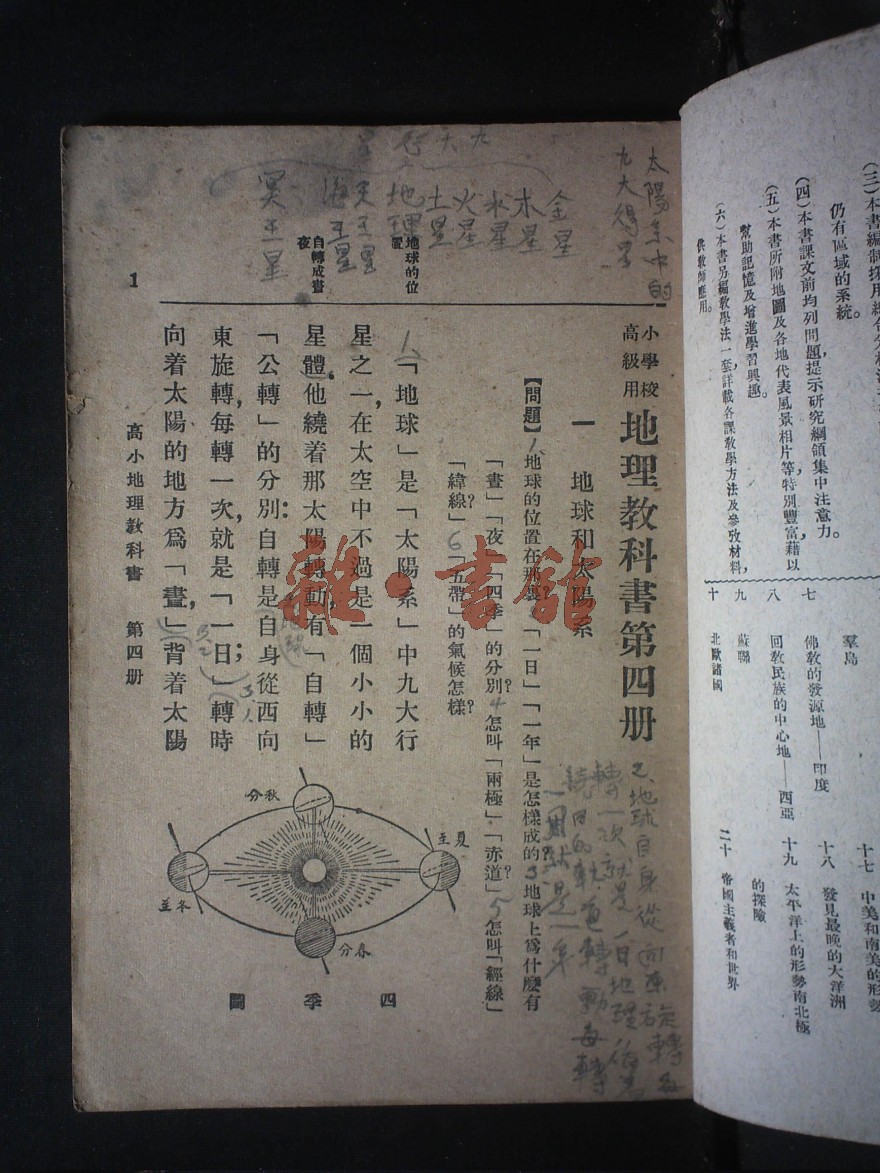 (四)本書課文前均列問題,提示研究綱領集中注意力。
仍有區域的系統。
(五)本書所附地圖及各地代表風景相片等,特別豐富,藉以
幫助記憶及增進學習興趣。
(六)本書另編教學法一套,詳載各課教學方法及參攷材料,
供教師應用。
十七 中美和南美的形勢
十八 發見最晚的大洋洲
十九 太平洋上的形勢南北極
的探險
二十 帝國主義者和世界
七
羣島
佛教的發源地——印度
八
回教民族的中心地——西亞
九
蘇聯
十
北歐諸國
太陽系中的
九大行星
金星
木星
水星
火星
土星
地理
天王星
海王星
冥王星
小學校
高級用
地理教科書第四册
一 地球和太陽系
【問題】1地球的位置在那裏?2「一日」「一年」是怎樣成的?3地球上爲什麽有
「晝」「夜」「四季」的分別?4怎叫「兩極」「赤道」?5怎叫「經線」
「緯線」?6「五帶」的氣候怎樣?
地球的位
置
自轉成晝
夜
1、「地球」是「太陽系」中九大行
星之一,在太空中不過是一個小小的
星體,他繞着那太陽轉動,有「自轉」
「公轉」的分別:自轉是自身從西向
東旋轉,每轉一次,就是「一日」;轉時
向着太陽的地方爲「晝」,背着太陽
2、地球自身從
轉一次就是一日地理
繞日的軌道轉動每轉
一周就是一年
秋分
夏至
冬至
春分
四季圖
1
高小地理教科書 第四册
雜·書館